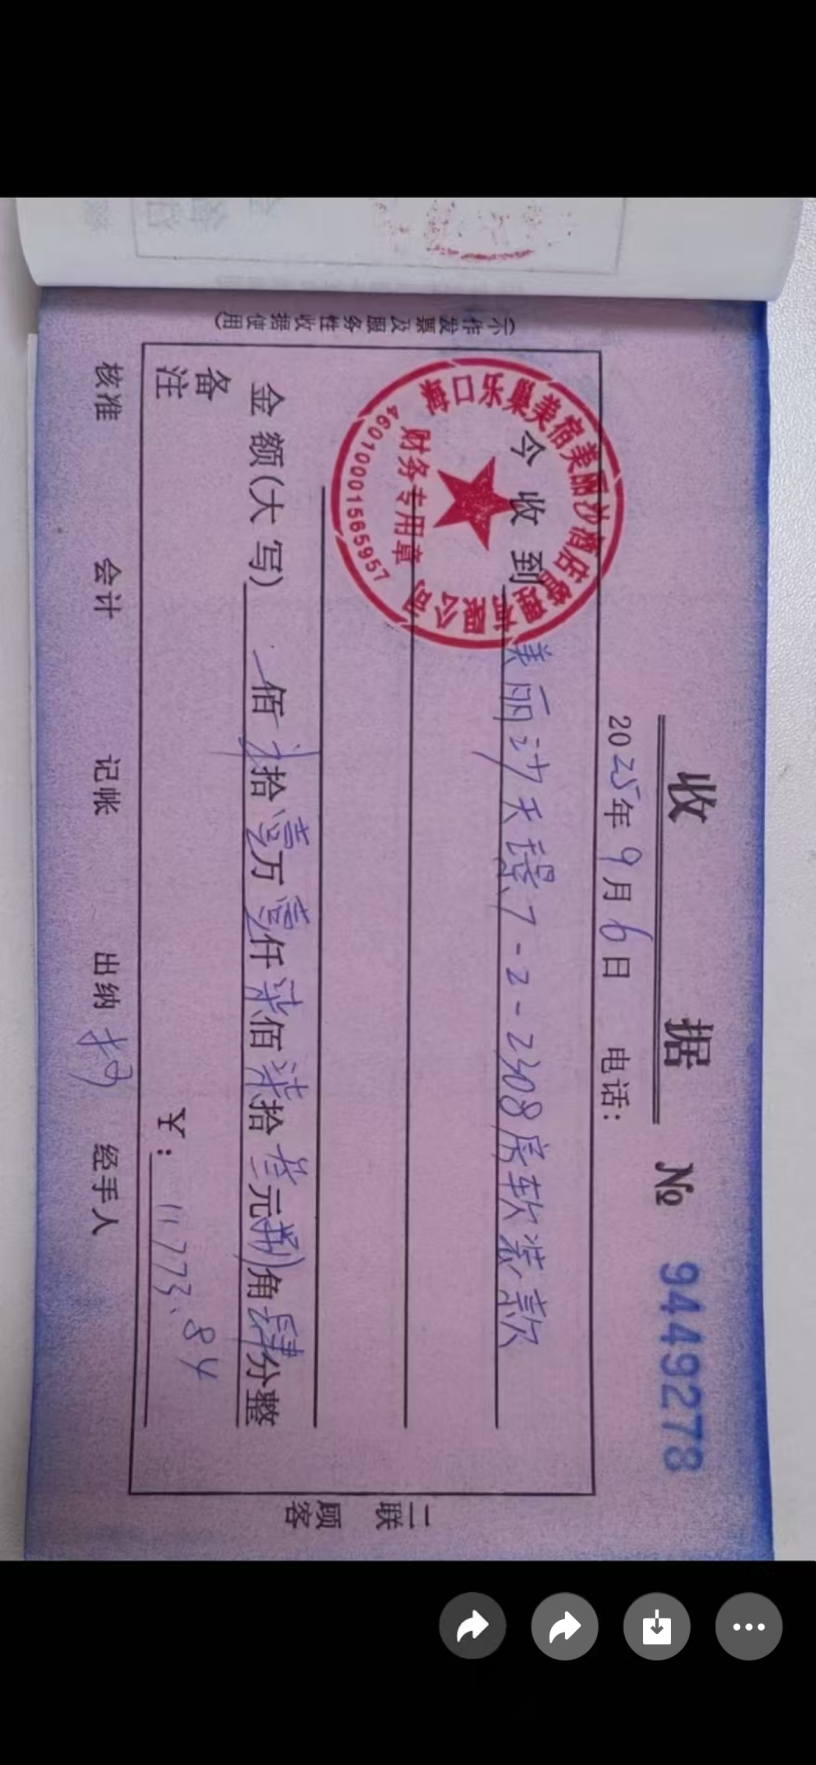 收 据 № 9449278
2025年9月6日 电话:
今收到 美丽沙天璟7-2-2308房软装款
金额(大写) 佰 拾壹万壹仟柒佰柒拾叁元捌角肆分整
¥: 11773.84
备注
核准 会计 记帐 出纳 经手人
二联 顾客
(不作发票及服务性收据使用)
海口乐巢美宿美丽沙酒店管理有限公司
财务专用章
4601000156595​7